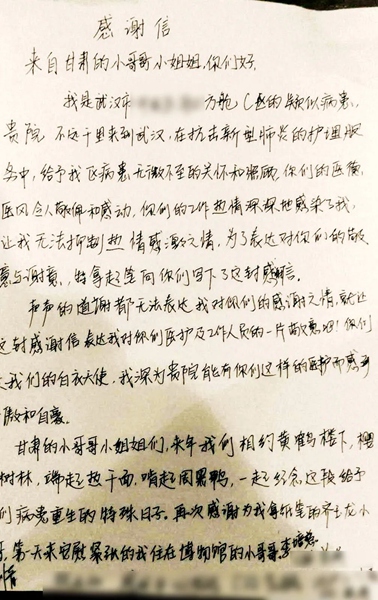 感谢信
来自甘肃的小哥哥小姐姐,你们好.
我是武汉市 方舱C区的疑似病患,
贵院不远千里来到武汉,在抗击新型肺炎的护理服
务中,给予我区病患无微不至的关怀和照顾,你们的医德,
医风令人敬佩和感动,你们的工作热情深深地感染了我,
让我无法抑制热情感激之情,为了表达对你们的敬
意与谢意,特拿起笔向你们写下了这封感谢信.
声声的道谢都无法表达我对你们的感谢之情,就让
这封感谢信表达我对你们医护及工作人员的一片敬意吧!你们
我们的白衣天使,我深为贵院能有你们这样的医护而感到
傲和自豪.
甘肃的小哥哥小姐姐们,来年我们相约黄鹤楼下,樱
树林,端起热干面,啃起周黑鸭,一起纪念这段给予
们病患重生的特殊日子.再次感谢为我拿纸笔的齐士龙小
第一天来安慰紧张的我住在博物馆的小哥哥李